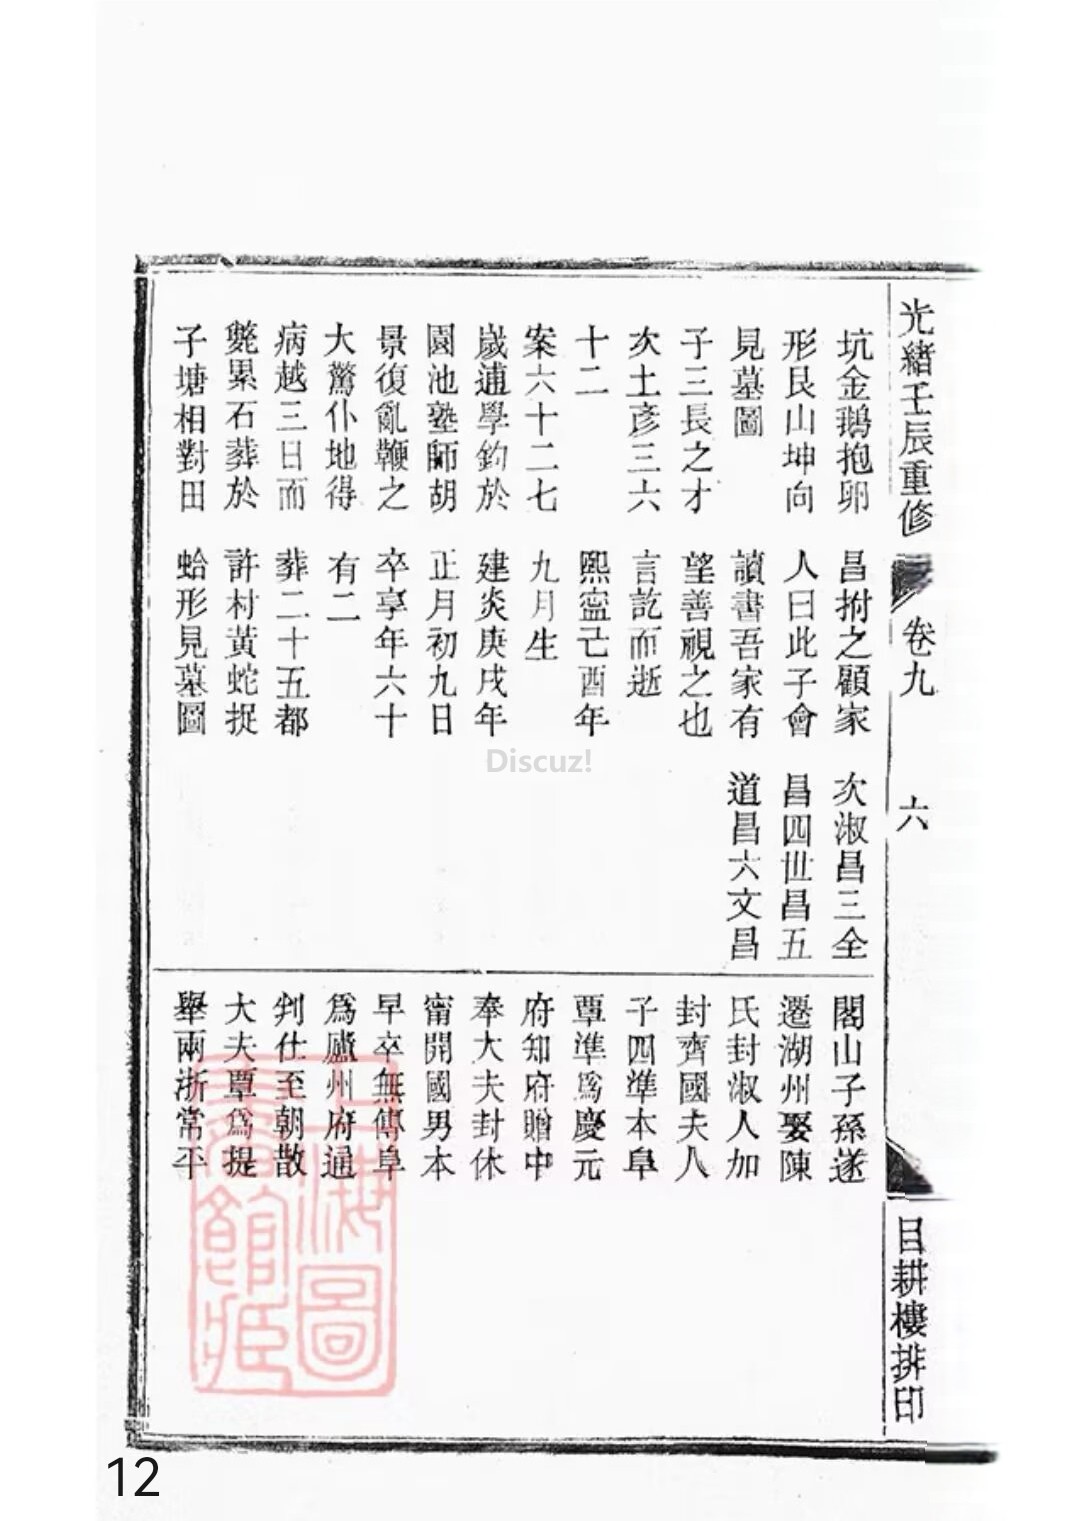 光緒壬辰重修
卷九
六
目耕樓排印
坑金鵝抱卵
形艮山坤向
見墓圖
子三長之才
次士彥三六
十二
案六十二七
歲逋學釣於
園池塾師胡
景復亂鞭之
大驚仆地得
病越三日而
斃累石葬於
子塘相對田
昌拊之顧家
人曰此子會
讀書吾家有
望善視之也
言訖而逝
熙寍己酉年
九月生
建炎庚戌年
正月初九日
卒享年六十
有二
葬二十五都
許村黃蛇捉
蛤形見墓圖
次淑昌三全
昌四世昌五
道昌六文昌
閣山子孫遂
遷湖州娶陳
氏封淑人加
封齊國夫人
子四準本阜
覃準為慶元
府知府贈中
奉大夫封休
甯開國男本
早卒無傳阜
爲廬州府通
判仕至朝散
大夫覃為提
舉兩浙常平
上海圖書館藏
Discuz!
12